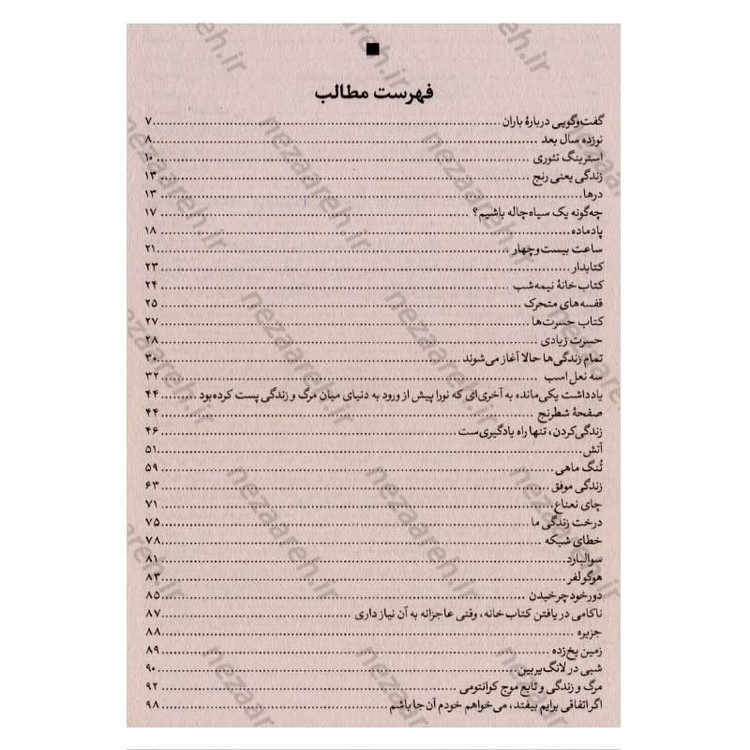 ■
فهرست مطالب
گفت‌وگویی دربارهٔ باران ........ ۷
نوزده سال بعد ........ ۸
استرینگ تئوری ........ ۱۰
زندگی یعنی رنج ........ ۱۳
درها ........ ۱۳
چه‌گونه یک سیاه‌چاله باشیم؟ ........ ۱۷
پادماده ........ ۱۸
ساعت بیست‌وچهار ........ ۲۱
کتابدار ........ ۲۳
کتاب‌خانهٔ نیمه‌شب ........ ۲۴
قفسه‌های متحرک ........ ۲۵
کتاب حسرت‌ها ........ ۲۷
حسرت زیادی ........ ۲۸
تمام زندگی‌ها حالا آغاز می‌شوند ........ ۳۰
سه نعل اسب ........ ۳۲
یادداشت یکی‌مانده به آخری‌ای که نورا پیش از ورود به دنیای میان مرگ و زندگی پست کرده‌بود ........ ۴۴
صفحهٔ شطرنج ........ ۴۴
زندگی‌کردن، تنها راه یادگیری‌ست ........ ۴۶
آتش ........ ۵۱
تُنگ ماهی ........ ۵۹
زندگی موفق ........ ۶۳
چای نعناع ........ ۷۱
درخت زندگی ما ........ ۷۵
خطای شبکه ........ ۷۸
سوالبارد ........ ۸۱
هوگو لفر ........ ۸۳
دور خود چرخیدن ........ ۸۵
ناکامی در یافتن کتاب‌خانه، وقتی عاجزانه به آن نیاز داری ........ ۸۷
جزیره ........ ۸۸
زمین یخ‌زده ........ ۸۹
شبی در لانگ‌یربین ........ ۹۰
مرگ و زندگی و تابع موج کوانتومی ........ ۹۲
اگر اتفاقی برایم بیفتد، می‌خواهم خودم آن‌جا باشم ........ ۹۸
nezaareh.ir